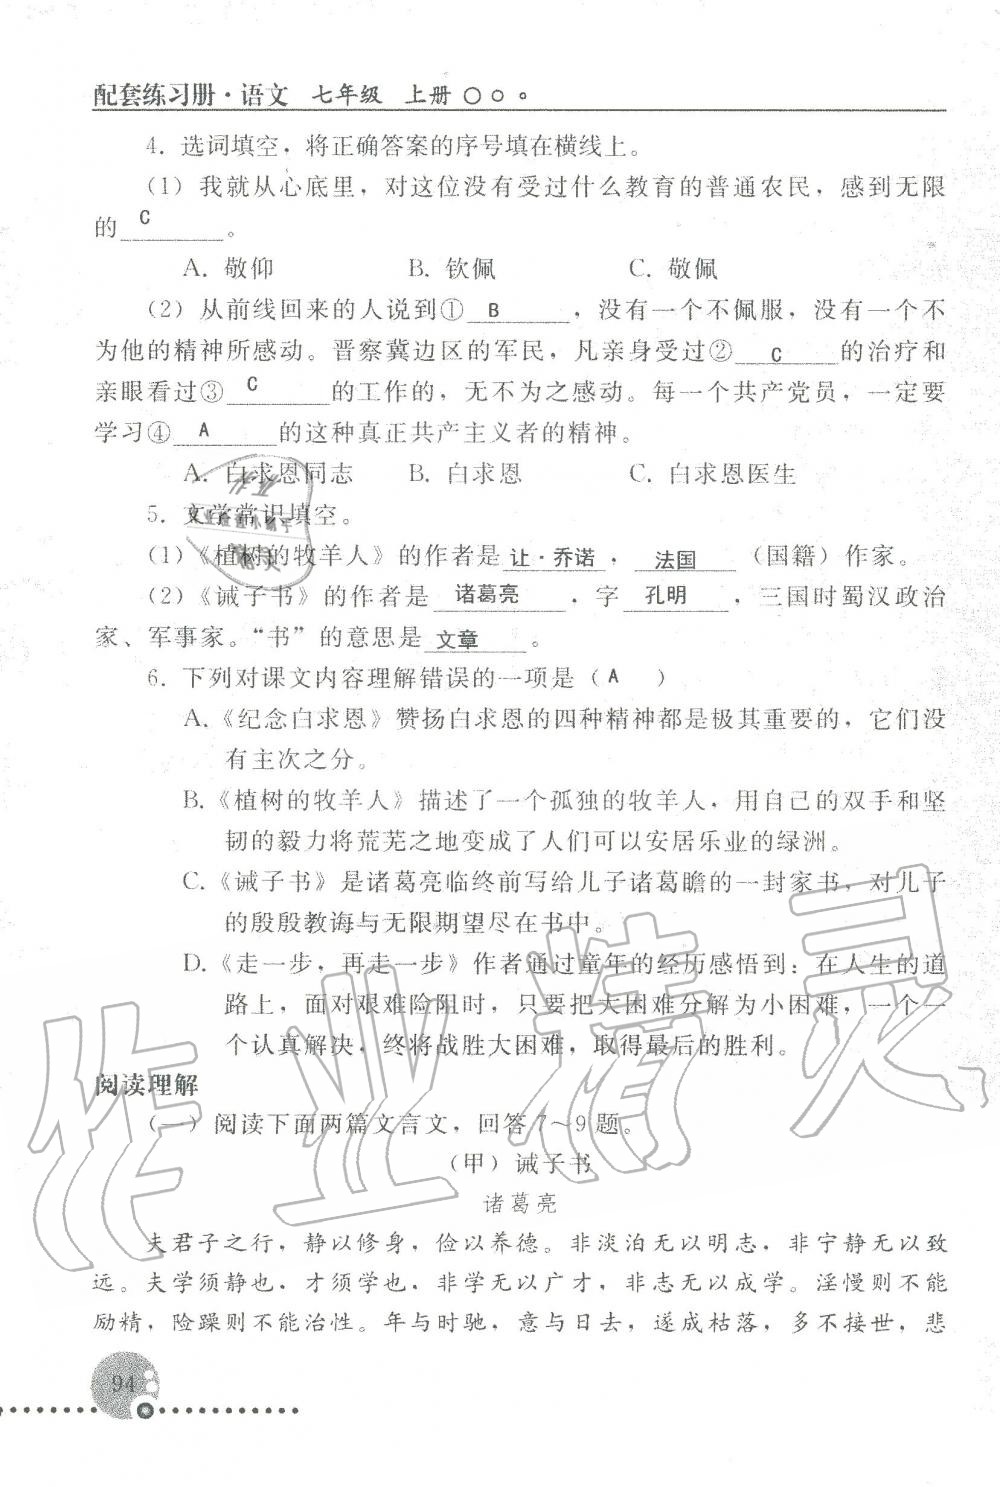 配套练习册·语文 七年级 上册
4. 选词填空，将正确答案的序号填在横线上。
(1) 我就从心底里，对这位没有受过什么教育的普通农民，感到无限
的 C 。
A. 敬仰 B. 钦佩 C. 敬佩
(2) 从前线回来的人说到① B ，没有一个不佩服，没有一个不
为他的精神所感动。晋察冀边区的军民，凡亲身受过② C 的治疗和
亲眼看过③ C 的工作的，无不为之感动。每一个共产党员，一定要
学习④ A 的这种真正共产主义者的精神。
A. 白求恩同志 B. 白求恩 C. 白求恩医生
5. 文学常识填空。
(1)《植树的牧羊人》的作者是 让·乔诺 ， 法国 （国籍）作家。
(2)《诫子书》的作者是 诸葛亮 ，字 孔明 ，三国时蜀汉政治
家、军事家。“书”的意思是 文章 。
6. 下列对课文内容理解错误的一项是（ A ）
A.《纪念白求恩》赞扬白求恩的四种精神都是极其重要的，它们没
有主次之分。
B.《植树的牧羊人》描述了一个孤独的牧羊人，用自己的双手和坚
韧的毅力将荒芜之地变成了人们可以安居乐业的绿洲。
C.《诫子书》是诸葛亮临终前写给儿子诸葛瞻的一封家书，对儿子
的殷殷教诲与无限期望尽在书中。
D.《走一步，再走一步》作者通过童年的经历感悟到：在人生的道
路上，面对艰难险阻时，只要把大困难分解为小困难，一个一
个认真解决，终将战胜大困难，取得最后的胜利。
阅读理解
（一）阅读下面两篇文言文，回答7～9题。
（甲）诫子书
诸葛亮
夫君子之行，静以修身，俭以养德。非淡泊无以明志，非宁静无以致
远。夫学须静也，才须学也，非学无以广才，非志无以成学。淫慢则不能
励精，险躁则不能治性。年与时驰，意与日去，遂成枯落，多不接世，悲
94
作业精灵